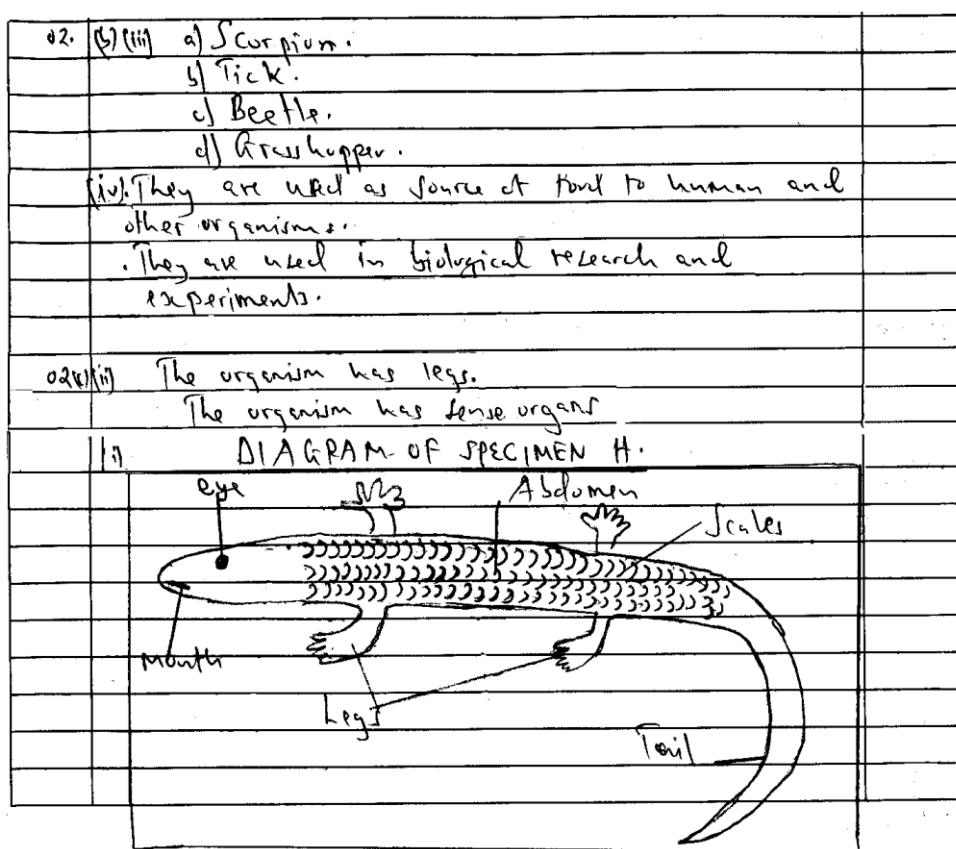 02. (b)(iii) a) Scorpium.
b) Tick.
c) Beetle.
d) Grasshopper.
(iv). They are used as source of food to human and
other organisms.
. They are used in biological research and
experiments.
02(c)(ii) The organism has legs.
The organism has sense organs
(i) DIAGRAM OF SPECIMEN H.
eye
Abdomen
Scales
Mouth
Legs
Tail